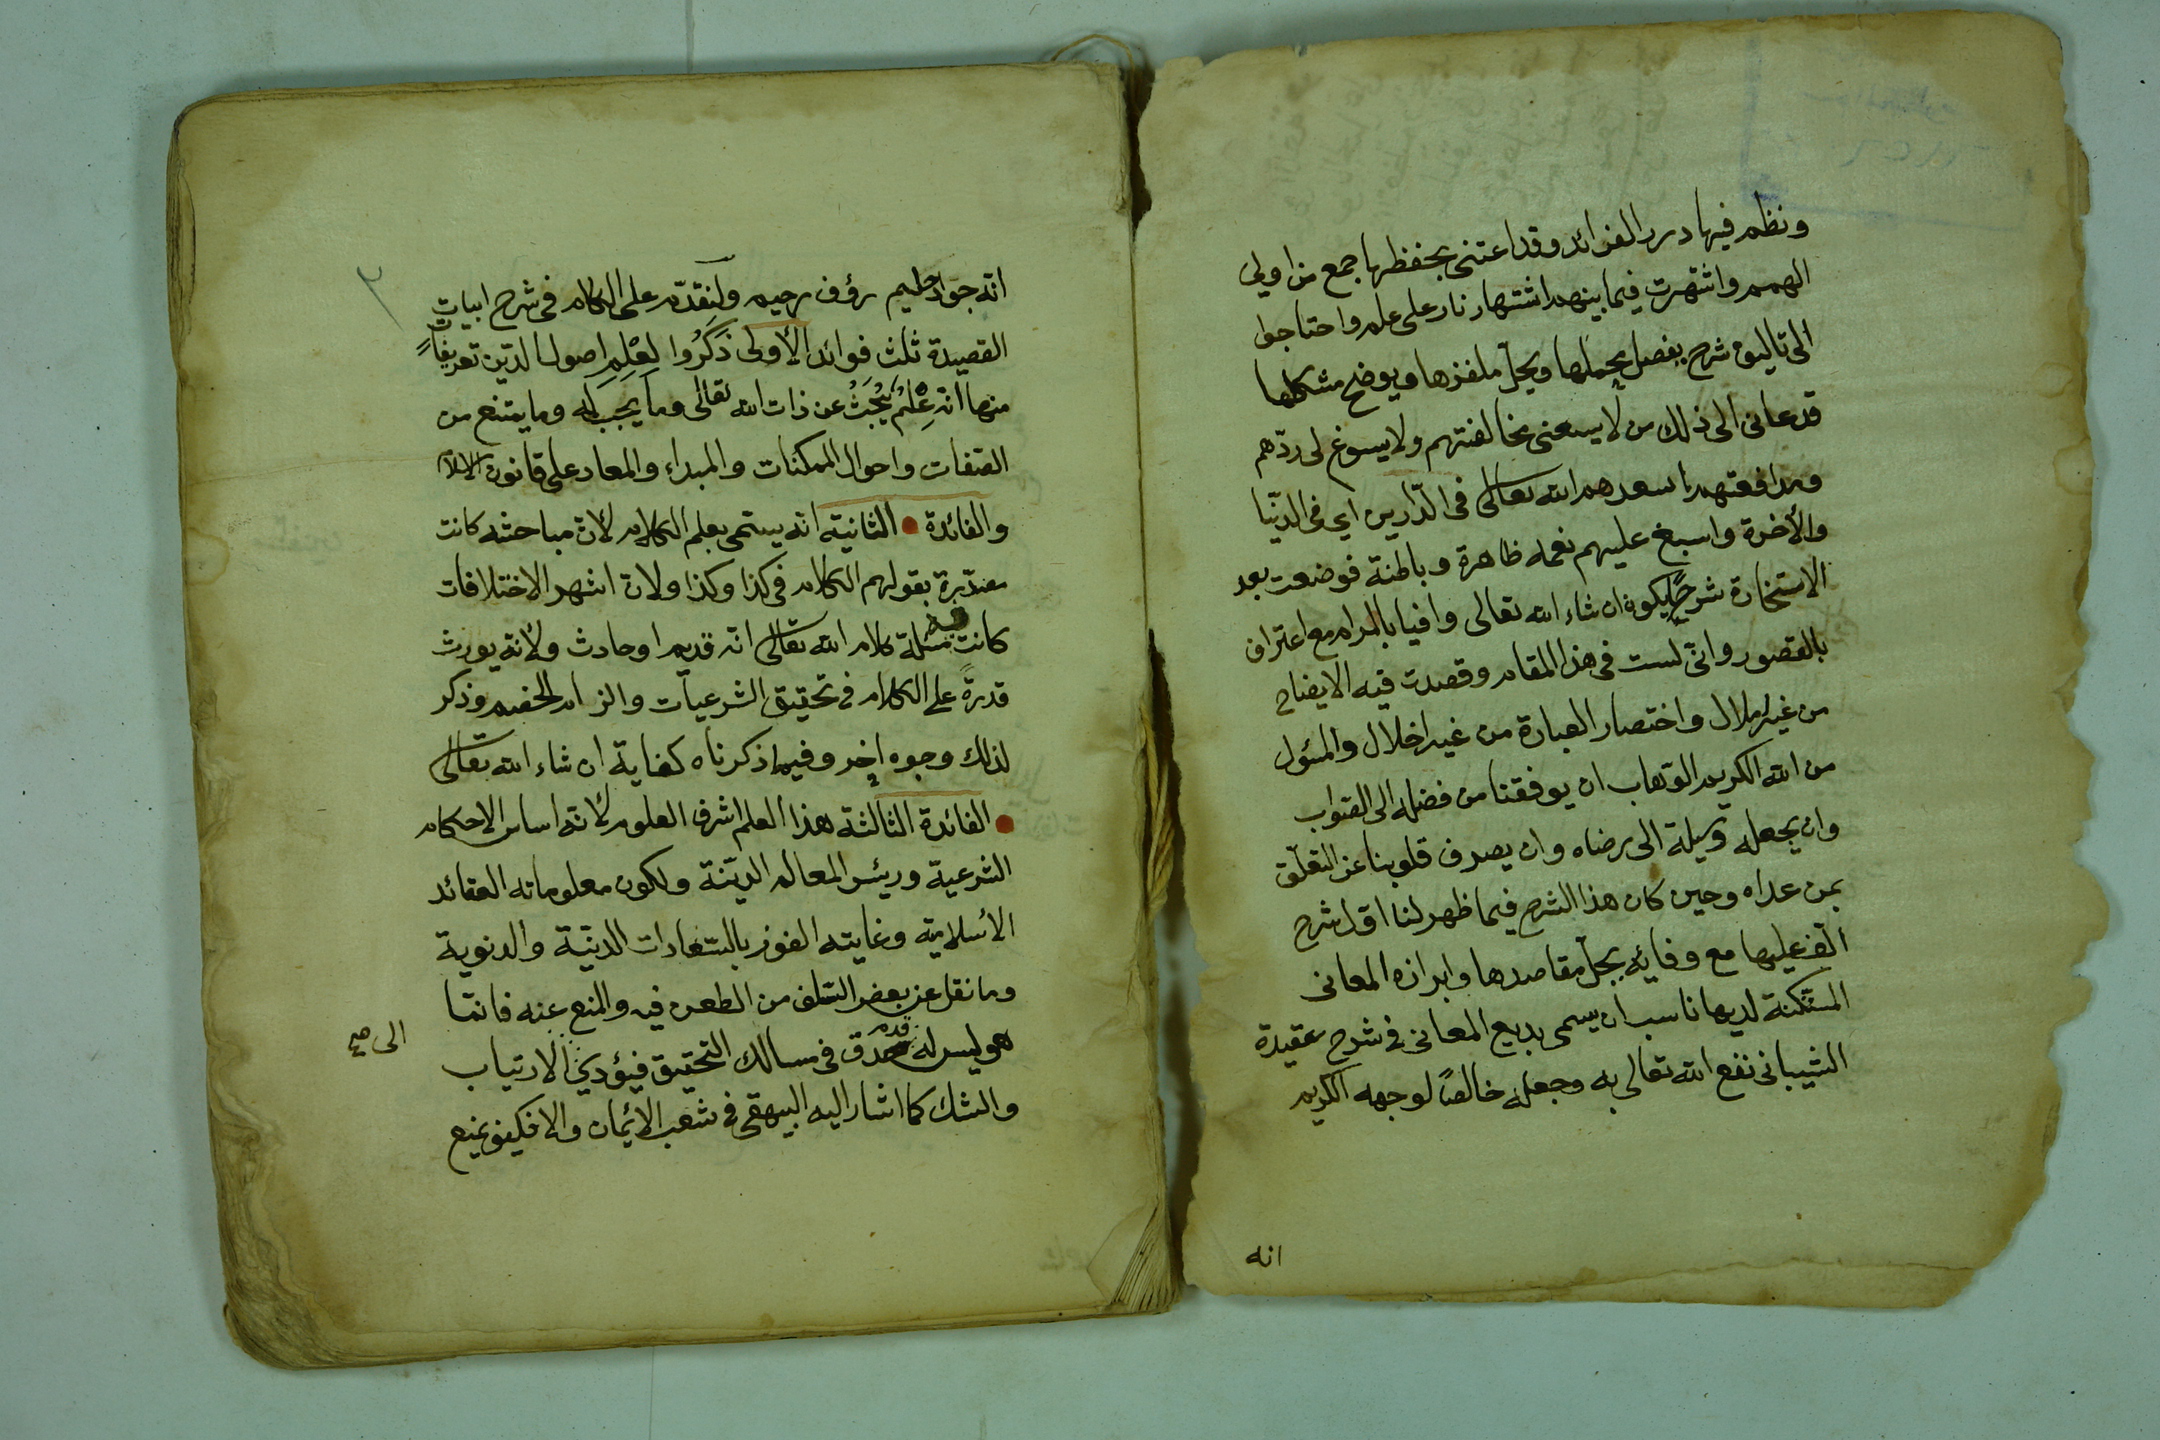 ونظم فيها درر الفرائد وقد اعتنى بحفظها جمع من اولي
الهمم واشتهرت فيما بينهم اشتهار نار على علم واحتاجوا
الى تاليف شرح يفصل مجملها ويحل ملغزها ويوضح مشكلها
فدعانى الى ذلك من لا يسعنى مخالفتهم ولا يسوغ لى ردّهم
ومدافعتهم اسعدهم الله تعالى فى الدّارين اي فى الدنيا
والأخرة واسبغ عليهم نعمه ظاهرة وباطنة فوضعت بعد
الاستخارة شرحًا يكون ان شاء الله تعالى وافيا بالمرام مع اعترافى
بالقصور وانى لست فى هذا المقام وقصدت فيه الايضاح
من غير املال واختصار العبارة من غير اخلال والمسئول
من الله الكريم الوهاب ان يوفقنا من فضله الى الصّواب
وان يجعله وسيلة الى رضاه وان يصرف قلوبنا عن التعلّق
بمن عداه وحين كان هذا الشرح فيما ظهر لنا اول شرح
الّف عليها مع وفائه بجلّ مقاصدها وابرازه المعانى
المستكنة لديها ناسب ان يسمى بديع المعانى فى شرح عقيدة
الشيبانى نفع الله تعالى به وجعله خالصًا لوجهه الكريم
انه
٢
انه جواد حليم رؤف رحيم ولنقدّم على الكلام فى شرح ابيات
القصيدة ثلث فوائد الأولى ذَكَرُوا لِعِلْمِ اصول الدّين تعريفاتٍ
منها انه عِلْمٌ يُبْحَثُ عن ذات الله تعالى وما يجب له وما يمتنع من
الصّفات واحوال الممكنات والمبداء والمعاد على قانون الاسلام
والفائدة الثانية انه يسمى بعلم الكلام لأن مباحثه كانت
مصدّرة بقولهم الكلام فى كذا وكذا ولان اشهر الاختلافات
كانت مسئلة كلام الله تعالى انه قديم او حادث ولأنه يورث
قدرةً على الكلام فى تحقيق الشرعيات والزام الخصم وذكر
لذلك وجوه اخر وفيما ذكرناه كفاية ان شاء الله تعالى
الفائدة الثالثة هذا العلم اشرف العلوم لأنه اساس الاحكام
الشرعية ورئيس المعالم الدينة ولكون معلوماته العقائد
الأسلامية وغايته الفوز بالسّعادات الدينيّة والدنوية
وما نقل عن بعض السّلف من الطعن فيه والمنع عنه فانما
هو ليس له قدم صدق فى مسالك التحقيق فيؤدي الارتياب
الى صح
والشك كما اشار اليه البيهقى فى شعب الأيمان والا فكيف يمنع